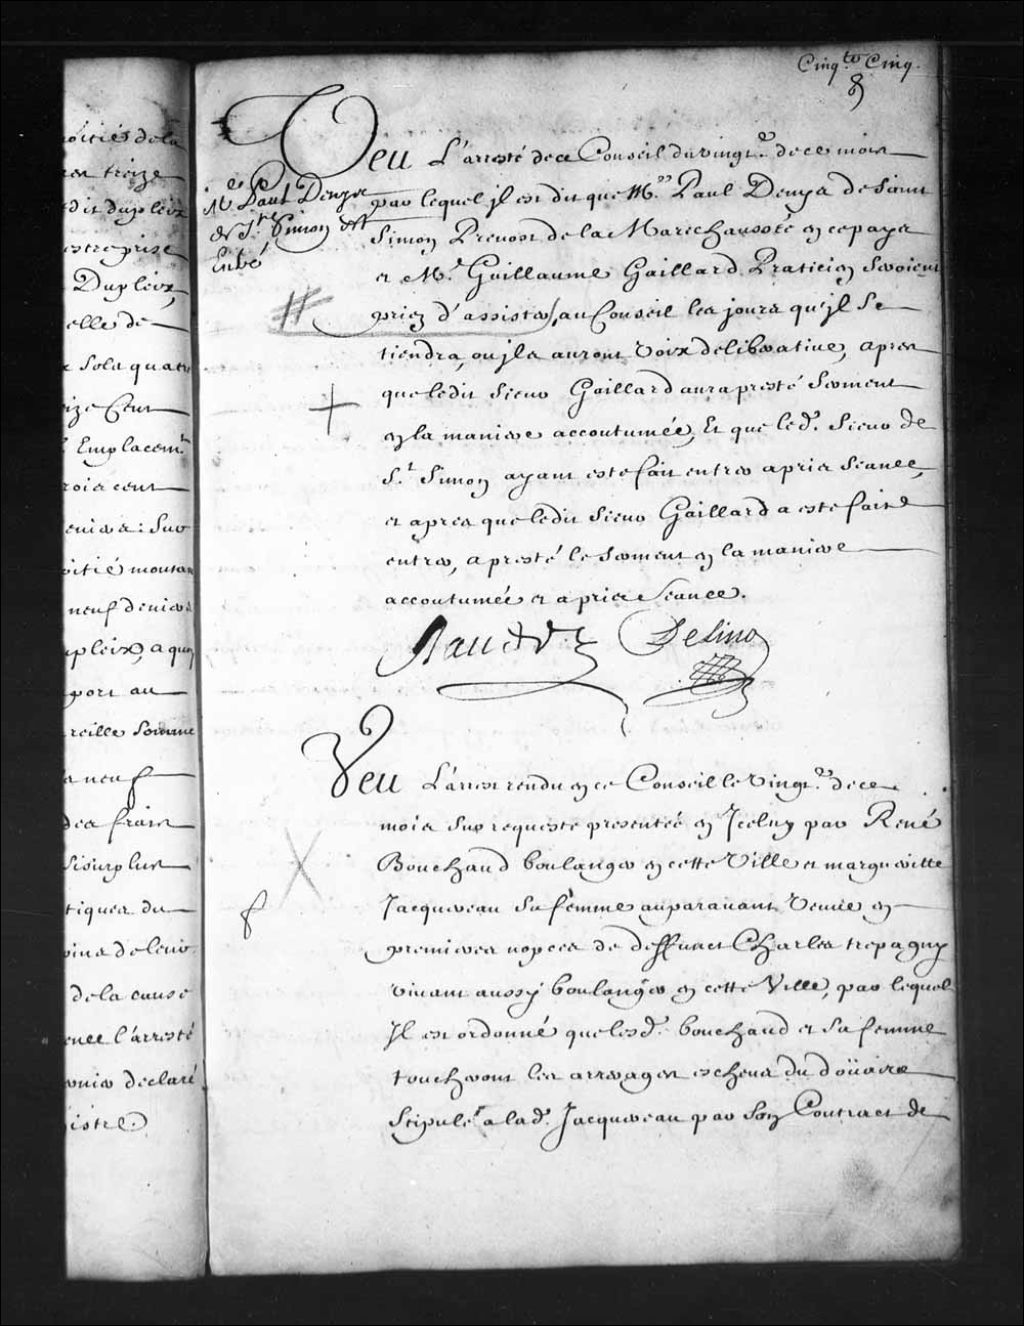 Cinq.te Cinq.
oitiés de la
res treize
dit dupleix
estreprise
Dupleix,
elle de
x Sols quatre
eize Cent
Emplacem.t
rois cent
eniers : Sur
oitié montan
neuf deniers
upleix, a quoy
port au
reille Somme
neuf
des frais
Sisurplus
tiques du
oins de leur
de la cause
ence l'arresté
declaré
istre.
M.e Paul Denys
de S.t Simon est
Entré
Veu L'arresté de ce Conseil du vingt.e de ce mois
par lequel jl est dit que M.re Paul Denys de Saint
Simon Prevost de la Mareschaussée en ce pays
et M.e Guillaume Gaillard Praticien Seroient
priez d'assister au Conseil les jours qu'jl Se
tiendra, ou jls auront Voix deliberative, apres
que ledit Sieur Gaillard aura presté Serment
en la maniere accoutumée, Et que led. Sieur de
S.t Simon ayant esté fait entrer a pris Seance,
et apres que ledit Sieur Gaillard a esté faite
entrer, a presté le Serment en la maniere
accoutumée et a pris Seance.
Raudot Delino
Veu L'arrest rendu en ce Conseil le vingt.e de ce
mois Sur requeste presentée en Jceluy par René
Bouchaud boulanger en cette Ville et margueritte
Jacquereau Sa femme auparavant Veuve en
premieres nopces de deffunct Charles trepagny
vivant aussy boulanger en cette Ville, par lequel
Jl est ordonné que lesd. bouchaud et Sa femme
toucheront les arrerages escheus du doüaire
Stipulé a lad. Jacquereau par Son Contract de